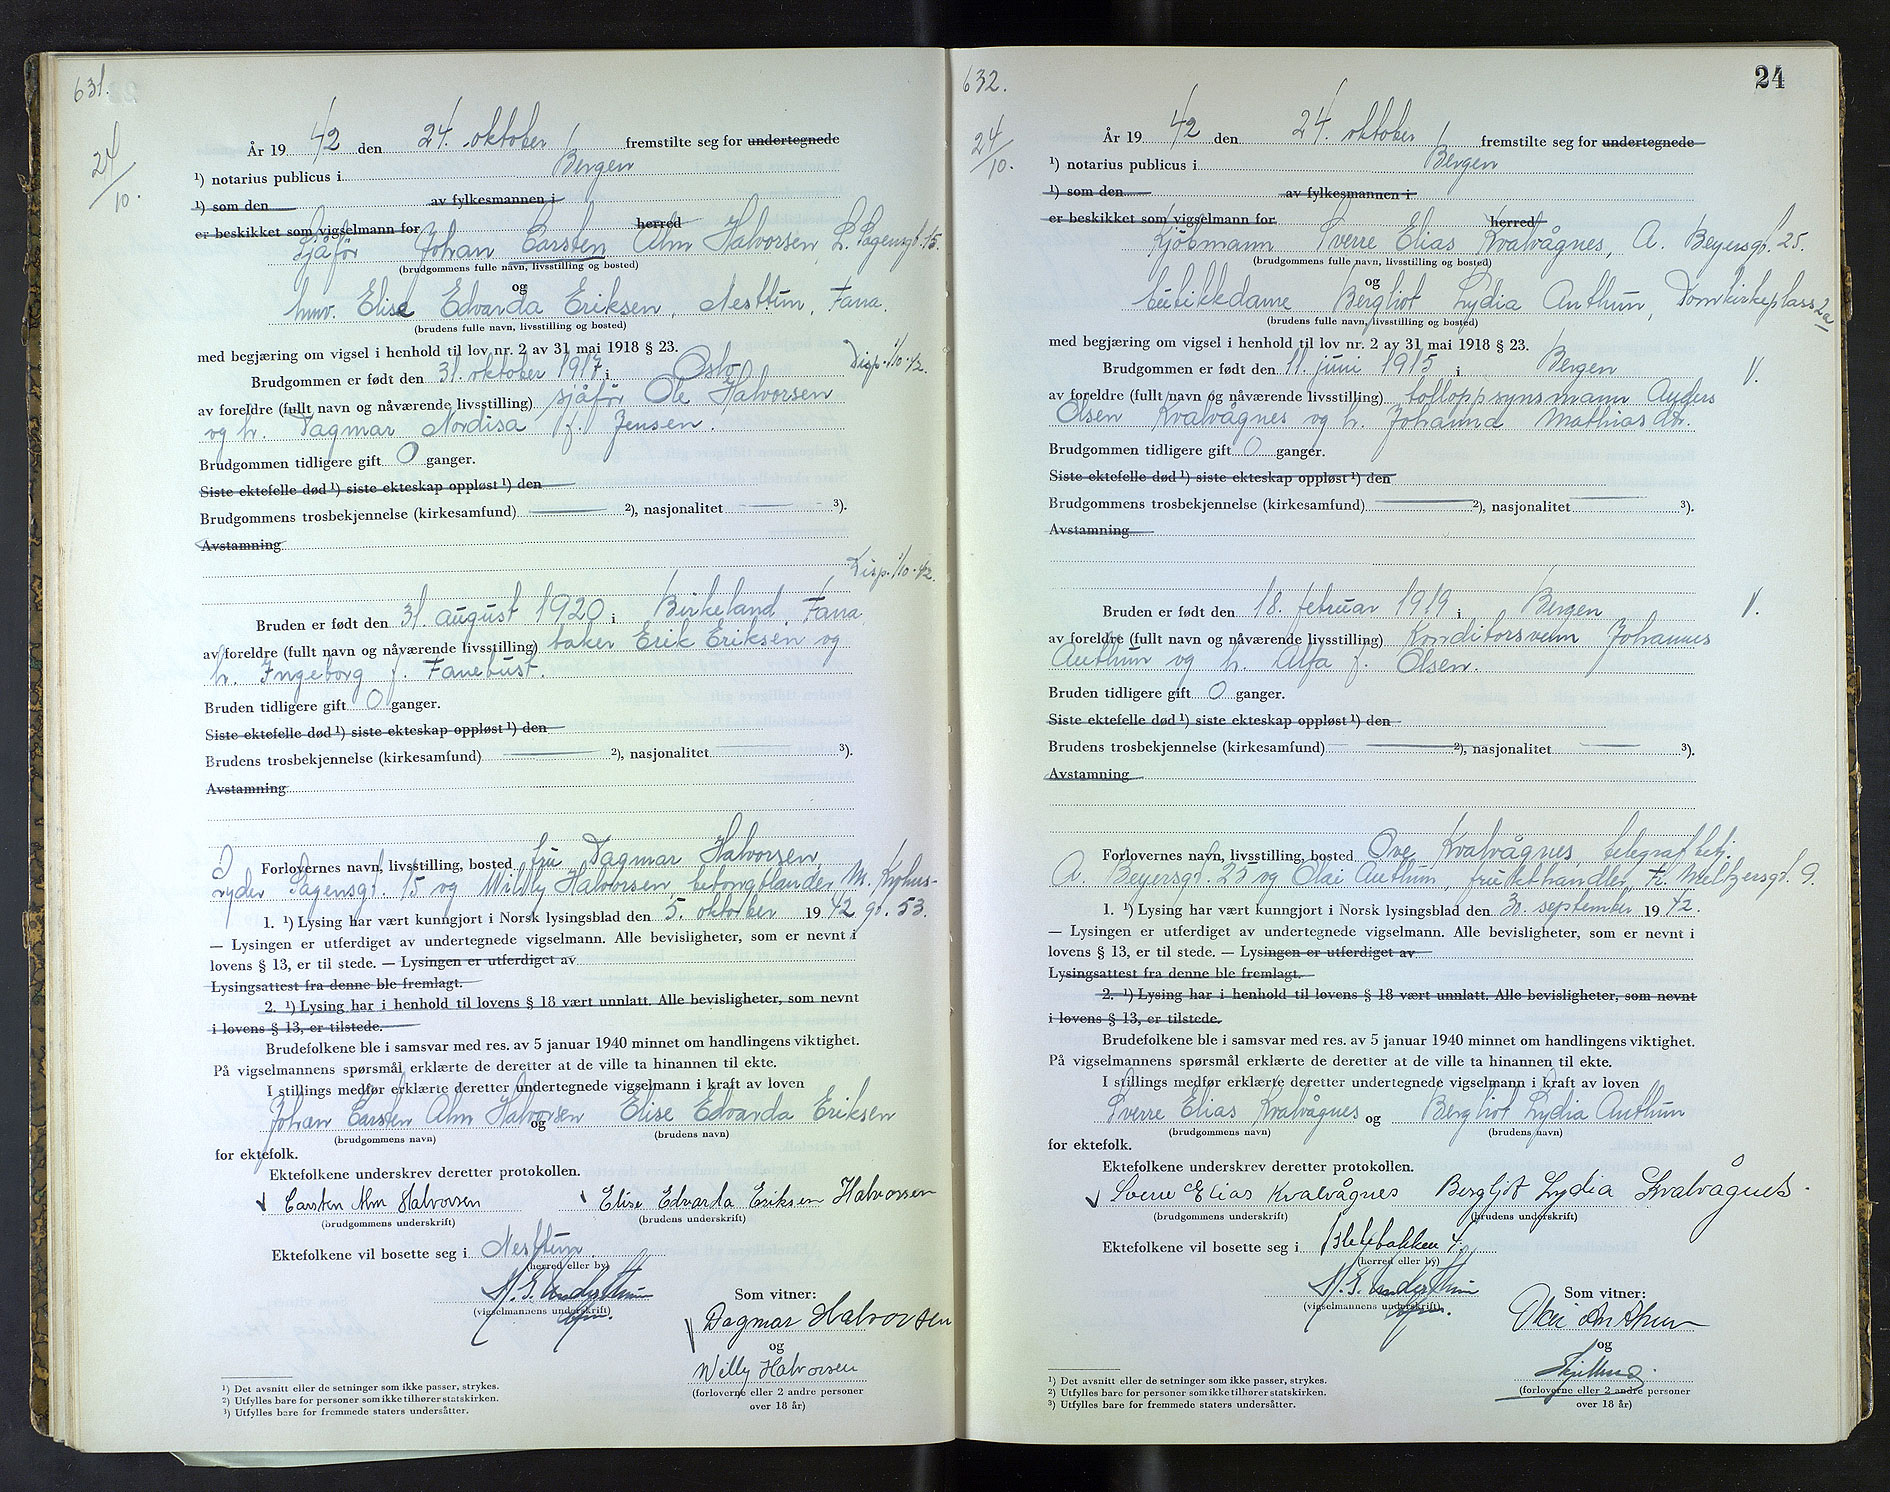 631.
24/10.
År 19 42 den 24. oktober fremstilte seg for undertegnede
¹) notarius publicus i Bergen
¹) som den av fylkesmannen i
er beskikket som vigselmann for herred
Sjåfør Johan Carsten Alm Halvorsen, L. Sagensgt. 15.
(brudgommens fulle navn, livsstilling og bosted)
og
huv. Elise Edvarda Eriksen, Nesttun, Fana.
(brudens fulle navn, livsstilling og bosted)
med begjæring om vigsel i henhold til lov nr. 2 av 31 mai 1918 § 23.
Disp. 1/10-42.
Brudgommen er født den 31. oktober 1917 i Oslo
av foreldre (fullt navn og nåværende livsstilling) sjåfør Ole Halvorsen
og h. Dagmar Nordisa f. Jensen.
Brudgommen tidligere gift 0 ganger.
Siste ektefelle død ¹) siste ekteskap oppløst ¹) den
Brudgommens trosbekjennelse (kirkesamfund) ²), nasjonalitet ³).
Avstamning
Disp. 1/10-42.
Bruden er født den 31. august 1920 i Birkeland, Fana,
av foreldre (fullt navn og nåværende livsstilling) baker Erik Eriksen og
h. Ingeborg f. Fanebust.
Bruden tidligere gift 0 ganger.
Siste ektefelle død ¹) siste ekteskap oppløst ¹) den
Brudens trosbekjennelse (kirkesamfund) ²), nasjonalitet ³).
Avstamning
Forlovernes navn, livsstilling, bosted fru Dagmar Halvorsen,
Lyder Sagensgt. 15 og Willy Halvorsen, betongblander, M. Krohns-
gt. 53.
1. ¹) Lysing har vært kunngjort i Norsk lysingsblad den 5. oktober 19 42
— Lysingen er utferdiget av undertegnede vigselmann. Alle bevisligheter, som er nevnt i
lovens § 13, er til stede. — Lysingen er utferdiget av
Lysingsattest fra denne ble fremlagt.
2. ¹) Lysing har i henhold til lovens § 18 vært unnlatt. Alle bevisligheter, som nevnt
i lovens § 13, er tilstede.
Brudefolkene ble i samsvar med res. av 5 januar 1940 minnet om handlingens viktighet.
På vigselmannens spørsmål erklærte de deretter at de ville ta hinannen til ekte.
I stillings medfør erklærte deretter undertegnede vigselmann i kraft av loven
Johan Carsten Alm Halvorsen og Elise Edvarda Eriksen
(brudgommens navn) (brudens navn)
for ektefolk.
Ektefolkene underskrev deretter protokollen.
Carsten Alm Halvorsen Elise Edvarda Eriksen Halvorsen
(brudgommens underskrift) (brudens underskrift)
Ektefolkene vil bosette seg i Nesttun.
(herred eller by)
(vigselmannens underskrift)
Som vitner:
Dagmar Halvorsen
og
Willy Halvorsen
(forloverne eller 2 andre personer
over 18 år)
¹) Det avsnitt eller de setninger som ikke passer, strykes.
²) Utfylles bare for personer som ikke tilhører statskirken.
³) Utfylles bare for fremmede staters undersåtter.
632.
24
24/10.
År 19 42 den 24. oktober fremstilte seg for undertegnede
¹) notarius publicus i Bergen
¹) som den av fylkesmannen i
er beskikket som vigselmann for herred
Kjøbmann Sverre Elias Kvalvågnes, A. Beyersgt. 25.
(brudgommens fulle navn, livsstilling og bosted)
og
butikkdame Bergliot Lydia Anthun, Domkirkeplass 2a
(brudens fulle navn, livsstilling og bosted)
med begjæring om vigsel i henhold til lov nr. 2 av 31 mai 1918 § 23.
Brudgommen er født den 11. juni 1915 i Bergen V.
av foreldre (fullt navn og nåværende livsstilling) tolloppsynsmann Anders
Olsen Kvalvågnes og h. Johanna Mathiasdtr.
Brudgommen tidligere gift 0 ganger.
Siste ektefelle død ¹) siste ekteskap oppløst ¹) den
Brudgommens trosbekjennelse (kirkesamfund) ²), nasjonalitet ³).
Avstamning
Bruden er født den 18. februar 1919 i Bergen V.
av foreldre (fullt navn og nåværende livsstilling) Konditorsvenn Johannes
Anthun og h. Alfa f. Olsen.
Bruden tidligere gift 0 ganger.
Siste ektefelle død ¹) siste ekteskap oppløst ¹) den
Brudens trosbekjennelse (kirkesamfund) ²), nasjonalitet ³).
Avstamning
Forlovernes navn, livsstilling, bosted Ove Kvalvågnes, telegrafbetj.
A. Beyersgt. 25 og Olai Anthun, frukthandler, Fr. Meltzersgt. 9.
1. ¹) Lysing har vært kunngjort i Norsk lysingsblad den 30. september 19 42.
— Lysingen er utferdiget av undertegnede vigselmann. Alle bevisligheter, som er nevnt i
lovens § 13, er til stede. — Lysingen er utferdiget av
Lysingsattest fra denne ble fremlagt.
2. ¹) Lysing har i henhold til lovens § 18 vært unnlatt. Alle bevisligheter, som nevnt
i lovens § 13, er tilstede.
Brudefolkene ble i samsvar med res. av 5 januar 1940 minnet om handlingens viktighet.
På vigselmannens spørsmål erklærte de deretter at de ville ta hinannen til ekte.
I stillings medfør erklærte deretter undertegnede vigselmann i kraft av loven
Sverre Elias Kvalvågnes og Bergliot Lydia Anthun
(brudgommens navn) (brudens navn)
for ektefolk.
Ektefolkene underskrev deretter protokollen.
Sverre Elias Kvalvågnes Bergljot Lydia Kvalvågnes.
(brudgommens underskrift) (brudens underskrift)
Ektefolkene vil bosette seg i
(herred eller by)
(vigselmannens underskrift)
Som vitner:
Olai Anthun
og
(forloverne eller 2 andre personer
over 18 år)
¹) Det avsnitt eller de setninger som ikke passer, strykes.
²) Utfylles bare for personer som ikke tilhører statskirken.
³) Utfylles bare for fremmede staters undersåtter.